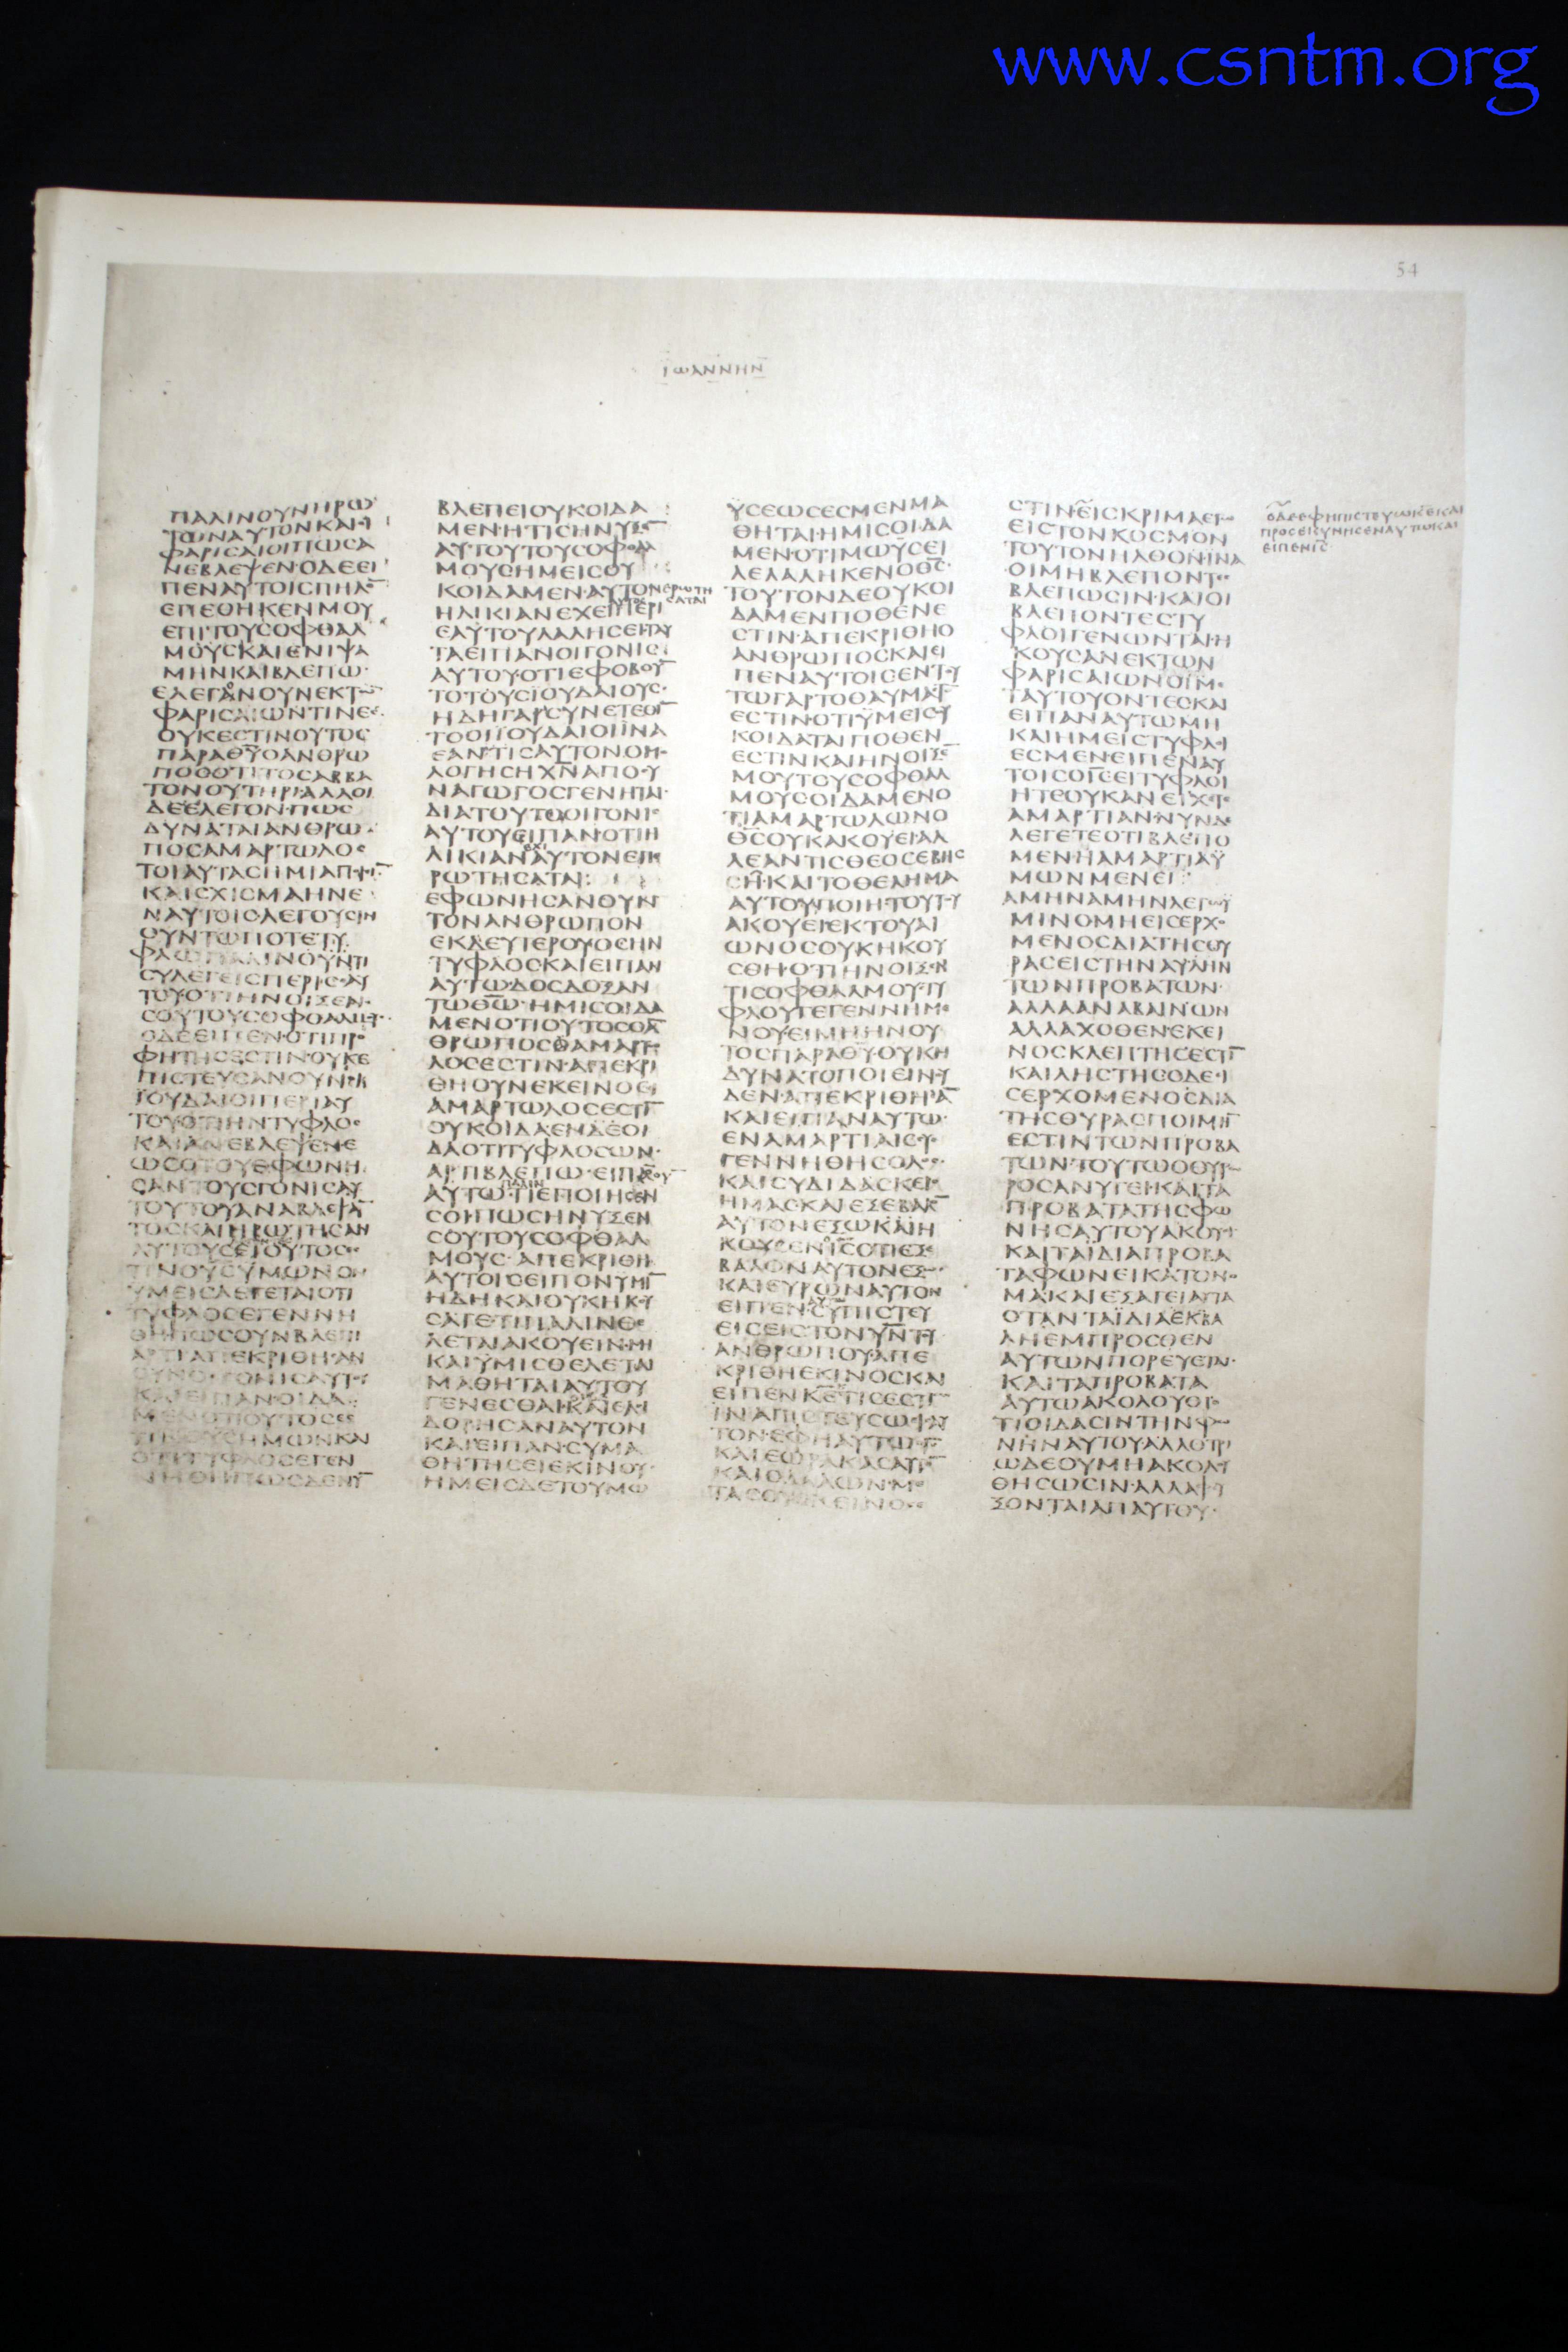 www.csntm.org
54
ΙΩΑΝΝΗΝ
ΠΑΛΙΝΟΥΝΗΡΩ
ΤΩΝΑΥΤΟΝΚΑΙΟΙ
ΦΑΡΙCΑΙΟΙΠΩCΑ
ΝΕΒΛΕΨΕΝΟΔΕΕΙ
ΠΕΝΑΥΤΟΙCΠΗΛΟ̅
ΕΠΕΘΗΚΕΝΜΟΥ
ΕΠΙΤΟΥCΟΦΘΑΛ
ΜΟΥCΚΑΙΕΝΙΨΑ
ΜΗΝΚΑΙΒΛΕΠΩ·
ΕΛΕΓΟΝΟΥΝΕΚΤΩ̅
ΦΑΡΙCΑΙΩΝΤΙΝΕC
ΟΥΚΕCΤΙΝΟΥΤΟC
ΠΑΡΑΘ̅Υ̅ΟΑΝΘΡΩ
ΠΟCΟΤΙΤΟCΑΒΒΑ
ΤΟΝΟΥΤΗΡΙΑΛΛΟΙ
ΔΕΕΛΕΓΟΝ·ΠΩC
ΔΥΝΑΤΑΙΑΝΘΡΩ
ΠΟCΑΜΑΡΤΩΛΟC
ΤΟΙΑΥΤΑCΗΜΙΑΠΟΙΙ̅
ΚΑΙCΧΙCΜΑΗΝΕ
ΝΑΥΤΟΙCΛΕΓΟΥCΙΝ
ΟΥΝΤΩΠΟΤΕΤΥ
ΦΛΩΠΑΛΙΝΟΥΝΤΙ
CΥΛΕΓΕΙCΠΕΡΙCΕΑΥ
ΤΟΥΟΤΙΗΝΟΙΞΕΝ·
CΟΥΤΟΥCΟΦΘΑΛΜΟΥC
ΟΔΕΕΙΠΕΝΟΤΙΠΡΟ
ΦΗΤΗCΕCΤΙΝ·ΟΥΚΕ
ΠΙCΤΕΥCΑΝΟΥΝΟΙ
ΙΟΥΔΑΙΟΙΠΕΡΙΑΥ
ΤΟΥΟΤΙΗΝΤΥΦΛΟC
ΚΑΙΑΝΕΒΛΕΨΕΝΕ
ΩCΟΤΟΥΕΦΩΝΗ
CΑΝΤΟΥCΓΟΝΙCΑΥ
ΤΟΥΤΟΥΑΝΑΒΛΕΨΑ̅
ΤΟCΚΑΙΗΡΩΤΗCΑΝ
ΑΥΤΟΥCΕΙΟΥΤΟC
ΥΜΕΙCΛΕΓΕΤΑΙΟΤΙ
ΤΥΦΛΟCΕΓΕΝΝΗ
ΘΗΠΩCΟΥΝΒΛΕΠΙ
ΑΡΤΙΑΠΕΚΡΙΘΗCΑΝ
ΚΑΙΕΙΠΑΝΟΙΔΑ
ΜΕΝΟΤΙΟΥΤΟCΕC
ΤΙΝΟΥCΗΜΩΝΚΑΙ
ΟΤΙΤΥΦΛΟCΕΓΕΝ
ΝΗΘΗΠΩCΔΕΝΥ̅
ΒΛΕΠΕΙΟΥΚΟΙΔΑ
ΜΕΝ·ΗΤΙCΗΝΥΞΕ̅
ΑΥΤΟΥΤΟΥCΟΦΘΑΛ
ΜΟΥCΗΜΕΙCΟΥ
ΚΟΙΔΑΜΕΝ·ΑΥΤΟΝΕΡΩΤΗ
CΑΤΑΙ
ΗΛΙΚΙΑΝΕΧΕΙΠΕΡΙ
ΕΑΥΤΟΥΛΑΛΗCΕΙΤΑΥ
ΤΑΕΙΠΑΝΟΙΓΟΝΙC
ΑΥΤΟΥ·ΟΤΙΕΦΟΒΟΥ̅
ΤΟΤΟΥCΙΟΥΔΑΙΟΥC·
ΗΔΗΓΑΡCΥΝΕΤΕΘΙ̅
ΤΟΟΙΙΟΥΔΑΙΟΙΙΝΑ
ΕΑΝΤΙCΑΥΤΟΝ·ΟΜΟ
ΛΟΓΗCΗΧ̅Ν̅ΑΠΟCΥ
ΝΑΓΩΓΟCΓΕΝΗΤΑΙ·
ΔΙΑΤΟΥΤΟΟΙΓΟΝΙC
ΑΥΤΟΥΕΙΠΑΝ·ΟΤΙΗ
ΛΙΚΙΑΝΕΧΙΑΥΤΟΝΕΠΕ
ΡΩΤΗCΑΤΑΙ:
ΕΦΩΝΗCΑΝΟΥΝ
ΤΟΝΑΝΘΡΩΠΟΝ
ΕΚΔΕΥΤΕΡΟΥΟCΗΝ
ΤΥΦΛΟCΚΑΙΕΙΠΑΝ
ΑΥΤΩΔΟCΔΟΞΑΝ
ΤΩΘ̅Ω̅·ΗΜΙCΟΙΔΑ
ΜΕΝΟΤΙΟΥΤΟCΟΑ̅
ΘΡΩΠΟCΑΜΑΡΤΩ
ΛΟCΕCΤΙΝ·ΑΠΕΚΡΙ
ΘΗΟΥΝΕΚΕΙΝΟCΕΙ
ΑΜΑΡΤΩΛΟCΕCΤΙ̅
ΟΥΚΟΙΔΑΕΝΔΕΟΙ
ΔΑΟΤΙΤΥΦΛΟCΩΝ·
ΑΡΤΙΒΛΕΠΩ·ΕΙΠΑΝΟΥ̅
ΠΑΛΙΝ
ΑΥΤΩ·ΤΙΕΠΟΙΗCΕΝ
CΟΙΠΩCΗΝΥΞΕΝ
CΟΥΤΟΥCΟΦΘΑΛ
ΜΟΥC·ΑΠΕΚΡΙΘΗ
ΑΥΤΟΙCΕΙΠΟΝΥΜΙ̅
ΗΔΗΚΑΙΟΥΚΗΚΟΥ
CΑΤΕΤΙΠΑΛΙΝΘΕ
ΛΕΤΑΙΑΚΟΥΕΙΝ·ΜΗ
ΚΑΙΥΜΙCΘΕΛΕΤΑΙ
ΜΑΘΗΤΑΙΑΥΤΟΥ
ΓΕΝΕCΘΑΙ·ΚΑΙΕΛΟΙ
ΔΟΡΗCΑΝΑΥΤΟΝ
ΚΑΙΕΙΠΑΝ·CΥΜΑ
ΘΗΤΗCΕΙΕΚΙΝΟΥ·
ΗΜΕΙCΔΕΤΟΥΜΩ
ΥCΕΩCΕCΜΕΝΜΑ
ΘΗΤΑΙ·ΗΜΙCΟΙΔΑ
ΜΕΝ·ΟΤΙΜΩΥCΕΙ
ΛΕΛΑΛΗΚΕΝΟΘ̅C̅·
ΤΟΥΤΟΝΔΕΟΥΚΟΙ
ΔΑΜΕΝΠΟΘΕΝΕ
CΤΙΝ·ΑΠΕΚΡΙΘΗΟ
ΑΝΘΡΩΠΟCΚΑΙΕΙ
ΠΕΝΑΥΤΟΙCΕΝΤΟΥ
ΤΩΓΑΡΤΟΘΑΥΜΑCΤ̅
ΕCΤΙΝ·ΟΤΙΥΜΕΙCΟΥ
ΚΟΙΔΑΤΑΙΠΟΘΕΝ
ΕCΤΙΝΚΑΙΗΝΟΙΞΕ̅
ΜΟΥΤΟΥCΟΦΘΑΛ
ΜΟΥCΟΙΔΑΜΕΝΟ
ΤΙΑΜΑΡΤΩΛΩΝΟ
Θ̅C̅ΟΥΚΑΚΟΥΕΙ·ΑΛ
ΛΕΑΝΤΙCΘΕΟCΕΒΗC
CΗ·ΚΑΙΤΟΘΕΛΗΜΑ
ΑΥΤΟΥΠΟΙΗΤΟΥΤΟΥ
ΑΚΟΥΕΙΕΚΤΟΥΑΙ
ΩΝΟCΟΥΚΗΚΟΥ
CΘΗ·ΟΤΙΗΝΟΙΞΕΝ
ΤΙCΟΦΘΑΛΜΟΥCΤΥ
ΦΛΟΥΓΕΓΕΝΝΗΜΕ
ΝΟΥ·ΕΙΜΗΗΝΟΥ
ΤΟCΠΑΡΑΘ̅Υ̅·ΟΥΚΗ
ΔΥΝΑΤΟΠΟΙΕΙΝΟΥ
ΔΕΝ·ΑΠΕΚΡΙΘΗCΑ̅
ΚΑΙΕΙΠΑΝΑΥΤΩ·
ΕΝΑΜΑΡΤΙΑΙCCΥ
ΓΕΝΝΗΘΗCΟΛΟC
ΚΑΙCΥΔΙΔΑCΚΕΙC
ΗΜΑC·ΚΑΙΕΞΕΒΑΛΟ̅
ΑΥΤΟΝΕΞΩΚΑΙΗ
ΚΟΥCΕΝΙ̅C̅ΟΤΙΕΞΕ
ΒΑΛΟΝΑΥΤΟΝΕΞΩ
ΚΑΙΕΥΡΩΝΑΥΤΟΝ
ΕΙΠΕΝ·CΥΠΙCΤΕΥ
ΕΙCΕΙCΤΟΝΥ̅Ν̅ΤΟΥ
ΑΝΘΡΩΠΟΥ·ΑΠΕ
ΚΡΙΘΗΕΚΙΝΟCΚΑΙ
ΕΙΠΕΝΚ̅Ε̅ΤΙCΕCΤΙ̅
ΙΝΑΠΙCΤΕΥCΩΙCΑΥ
ΤΟΝ·ΕΦΗΑΥΤΩΟΙ̅C̅
ΚΑΙΕΩΡΑΚΑCΑΥΤΟ̅
ΚΑΙΟΛΑΛΩΝ·ΜΕ
CΤΙΝΕΙCΚΡΙΜΑΕΓΩ
ΕΙCΤΟΝΚΟCΜΟΝ
ΤΟΥΤΟΝΗΛΘΟΝ·ΙΝΑ
ΟΙΜΗΒΛΕΠΟΝΤΕC
ΒΛΕΠΩCΙΝ·ΚΑΙΟΙ
ΒΛΕΠΟΝΤΕCΤΥ
ΦΛΟΙΓΕΝΩΝΤΑΙ·Η
ΚΟΥCΑΝΕΚΤΩΝ
ΦΑΡΙCΑΙΩΝΟΙΜΕ
ΤΑΥΤΟΥΟΝΤΕCΚΑΙ
ΕΙΠΑΝΑΥΤΩΜΗ
ΚΑΙΗΜΕΙCΤΥΦΛΟΙ
ΕCΜΕΝ·ΕΙΠΕΝΑΥ
ΤΟΙCΟΙ̅C̅ΕΙΤΥΦΛΟΙ
ΗΤΕΟΥΚΑΝΕΙΧΕΤΕ
ΑΜΑΡΤΙΑΝ·ΝΥΝΔΕ
ΛΕΓΕΤΕΟΤΙΒΛΕΠΟ
ΜΕΝ·ΗΑΜΑΡΤΙΑΥ
ΜΩΝΜΕΝΕΙ:
ΑΜΗΝΑΜΗΝΛΕΓΩΥ
ΜΙΝΟΜΗΕΙCΕΡΧΟ
ΜΕΝΟCΔΙΑΤΗCΘΥ
ΡΑCΕΙCΤΗΝΑΥΛΗΝ
ΤΩΝΠΡΟΒΑΤΩΝ·
ΑΛΛΑΑΝΑΒΑΙΝΩΝ
ΑΛΛΑΧΟΘΕΝ·ΕΚΕΙ
ΝΟCΚΛΕΠΤΗCΕCΤΙ̅
ΚΑΙΛΗCΤΗCΟΔΕΕΙ
CΕΡΧΟΜΕΝΟCΔΙΑ
ΤΗCΘΥΡΑCΠΟΙΜΗ̅
ΕCΤΙΝΤΩΝΠΡΟΒΑ
ΤΩΝ·ΤΟΥΤΩΟΘΥΡΩ
ΡΟCΑΝΥΓΕΙ·ΚΑΙΤΑ
ΠΡΟΒΑΤΑΤΗCΦΩ
ΝΗCΑΥΤΟΥΑΚΟΥΕΙ
ΚΑΙΤΑΙΔΙΑΠΡΟΒΑ
ΤΑΦΩΝΕΙΚΑΤΟΝΟ
ΜΑΚΑΙΕΞΑΓΕΙΑΥΤΑ
ΟΤΑΝΤΑΙΔΙΑΕΚΒΑ
ΛΗΕΜΠΡΟCΘΕΝ
ΑΥΤΩΝΠΟΡΕΥΕΤΑΙ·
ΚΑΙΤΑΠΡΟΒΑΤΑ
ΑΥΤΩΑΚΟΛΟΥΘΕΙΟ
ΤΙΟΙΔΑCΙΝΤΗΝΦΩ
ΝΗΝΑΥΤΟΥ·ΑΛΛΟΤΡΙ
ΩΔΕΟΥΜΗΑΚΟΛΟΥ
ΘΗCΩCΙΝ·ΑΛΛΑΦΕΥ
ΞΟΝΤΑΙΑΠΑΥΤΟΥ·
ΟΔΕΕΦΗΠΙCΤΕΥΩΚ̅Ε̅ΚΑΙ
ΠΡΟCΕΚΥΝΗCΕΝΑΥΤΩΚΑΙ
ΕΙΠΕΝΟΙ̅C̅